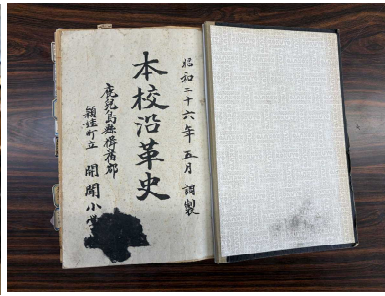 昭和二十六年五月調製
本校沿革史
鹿兒島縣揖宿郡
頴娃町立 開聞小學